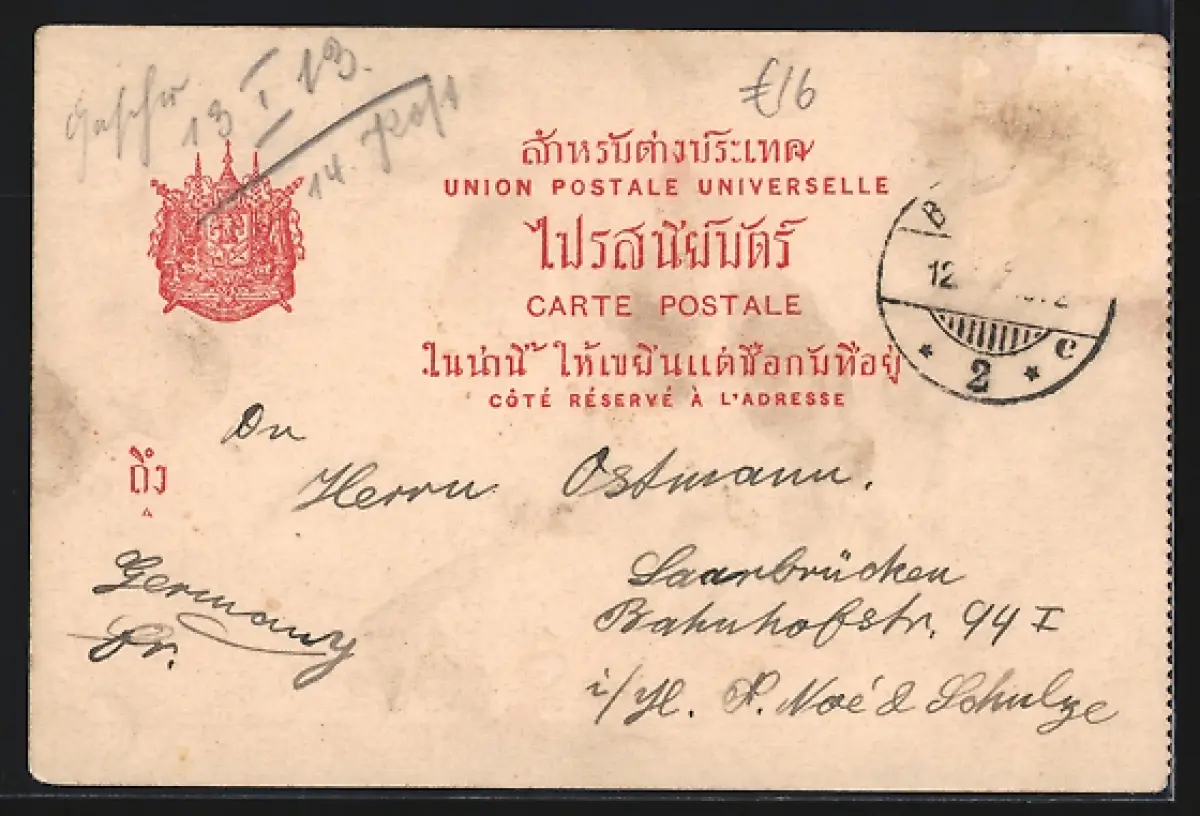 13 I 13.
14.
€16
สำหรับต่างประเทศ
UNION POSTALE UNIVERSELLE
ไปรสนีย์บัตร์
CARTE POSTALE
ในน่านี้ ให้เขยีนแต่ชื่อกับที่อยู่
CÔTÉ RÉSERVÉ À L'ADRESSE
B
12
2 c
An
ถึง
Herrn Ostmann.
Germany
Saarbrücken
Bahnhofstr. 44 I
i/ P. Noé & Schulze